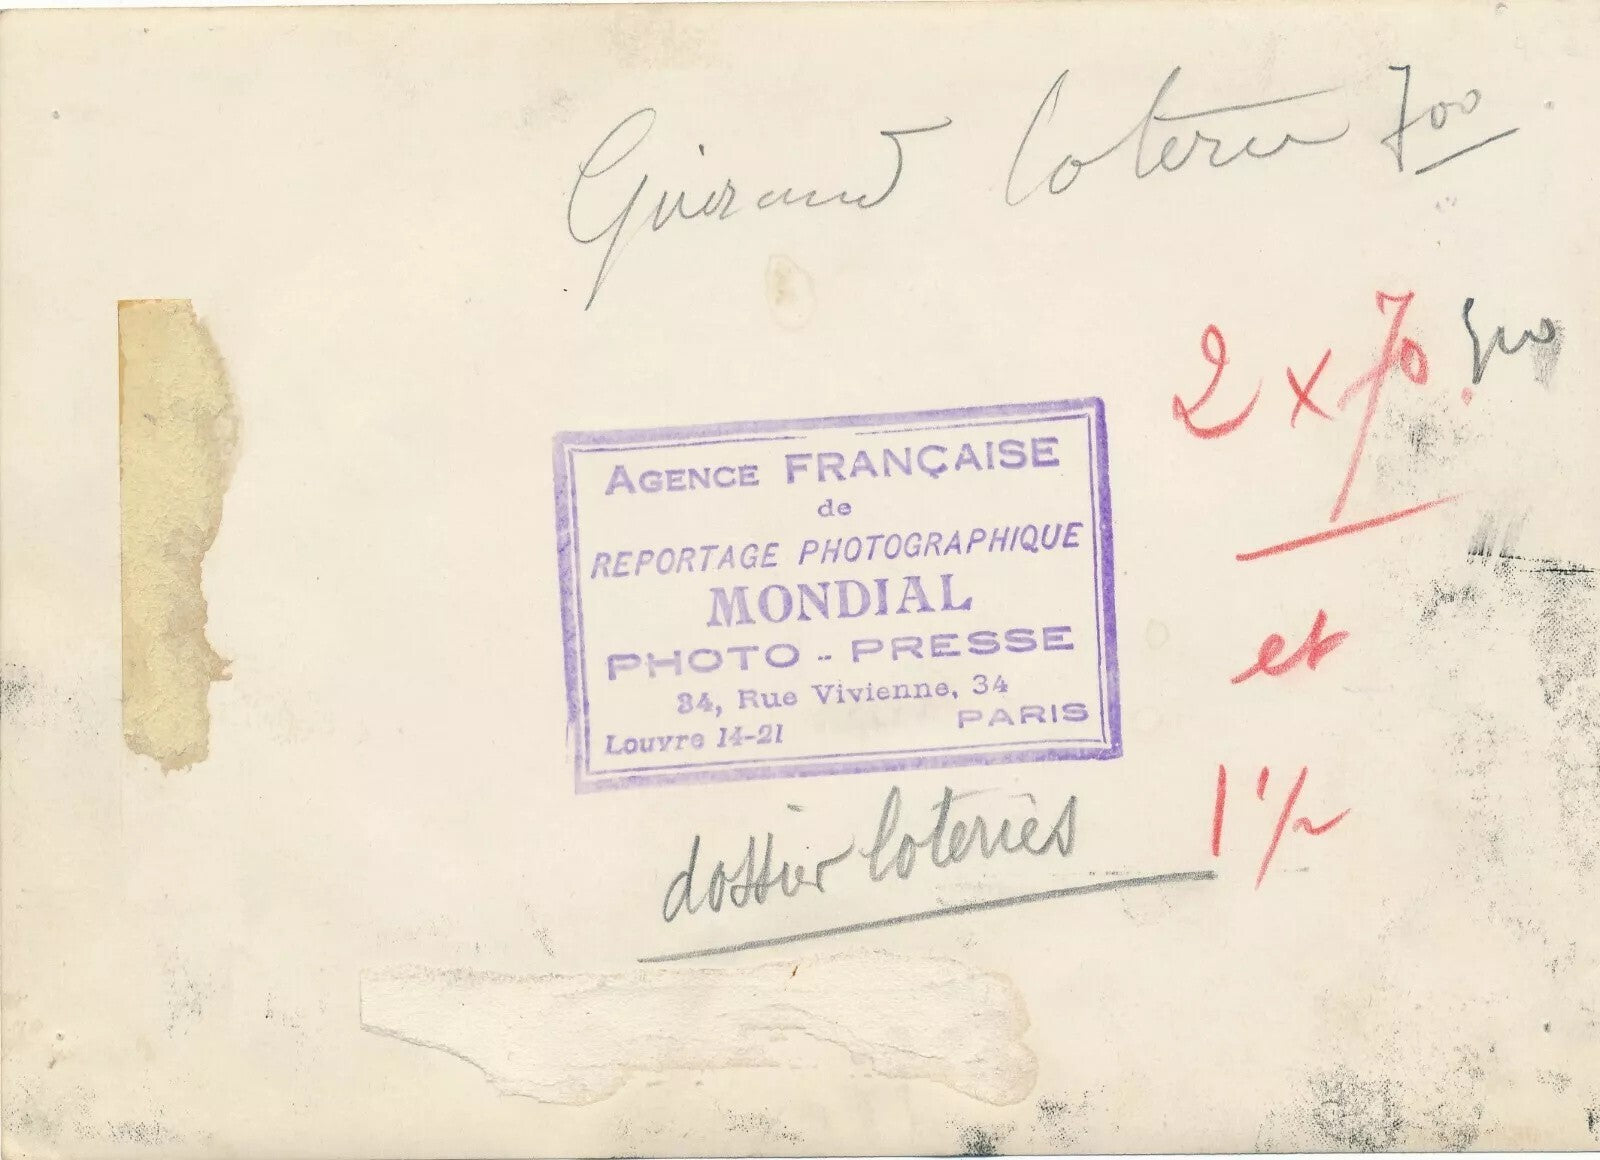 Guiraud Loterie 700
2 x 70
AGENCE FRANÇAISE
de
REPORTAGE PHOTOGRAPHIQUE
MONDIAL
PHOTO - PRESSE
34, Rue Vivienne, 34
PARIS
Louvre 14-21
et
1 1/2
dossier loteries